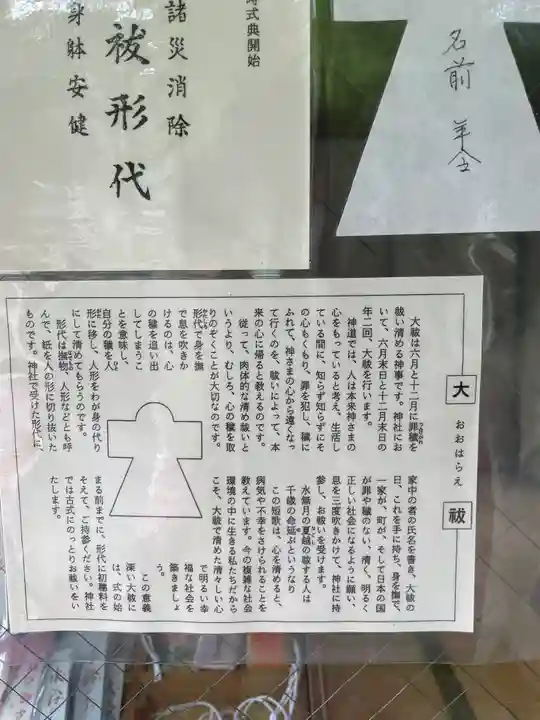 式典開始
諸災消除
祓形代
身躰安健
名前
大祓
おおはらえ
大祓は六月と十二月に罪穢を
祓い清める神事です。神社にお
いて、六月末日と十二月末日の
年二回、大祓を行います。
神道では、人は本来神さまの
心をもっていると考え、生活し
ている間に、知らず知らずにそ
の心もくもり、罪を犯し、穢に
ふれて、神さまの心から遠くなっ
て行くのを、祓いによって、本
来の心に帰ると教えるのです。
従って、肉体的な清め祓いと
いうより、むしろ、心の穢を取
りのぞくことが大切なのです。
形代で身を撫
で息を吹きか
けるのは、心
の穢を追い出
してしまうこ
とを意味し、
自分の穢を人
形に移し、人形をわが身の代り
にして清めてもらうのです。
形代は撫物、人形などとも呼
んで、紙を人の形に切り抜いた
ものです。神社で受けた形代に、
家中の者の氏名を書き、大祓の
日、これを手に持ち、身を撫で、
一家が、町が、そして日本の国
が罪や穢のない、清く、明るく
正しい社会になるように願い、
息を三度吹きかけて、神社に持
参し、お祓いを受けます。
水無月の夏越の祓する人は
千歳の命延ぶというなり
この短歌は、心を清めると、
病気や不幸をさけられることを
教えています。今の複雑な社会
環境の中に生きる私たちだから
こそ、大祓で清めた清々しい心
で明るい幸
福な社会を
築きましょ
う。
この意義
深い大祓に
は、式の始
まる前までに、形代に初穂料を
そえて、ご持参ください。神社
では古式にのっとりお祓いをい
たします。